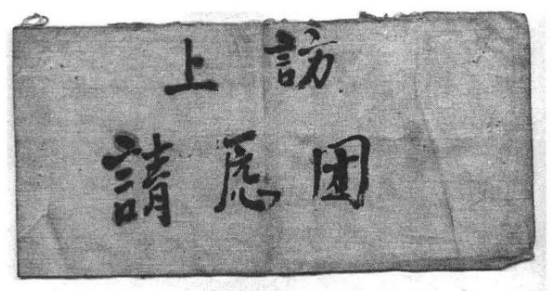 上訪
請愿团